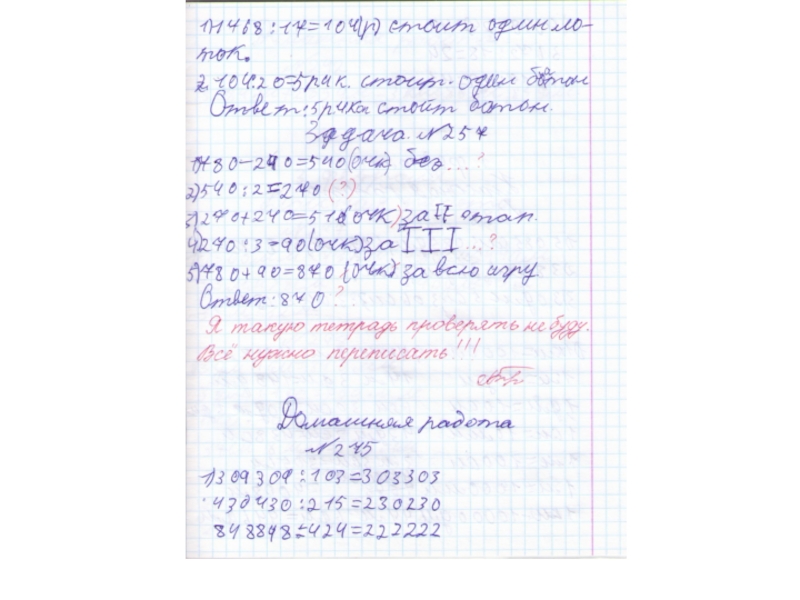 1)1468:14=104(р) стоит один ло-
ток.
2. 104:20=5р4к. стоит один батон
Ответ: 5р4ка стоит батон.
Задача. №257
1)780-240=540(очк) без...?
2)540:2=270 (?)
3)270+240=510(очк) за II этап.
4)270:3=90(очк) за III...?
5)780+90=870 (очк) за всю игру.
Ответ: 870 ?
Я такую тетрадь проверять не буду.
Всё нужно переписать!!!
Домашняя работа
№275
1)309309:103=303303
430430:215=230230
848848:424=222222